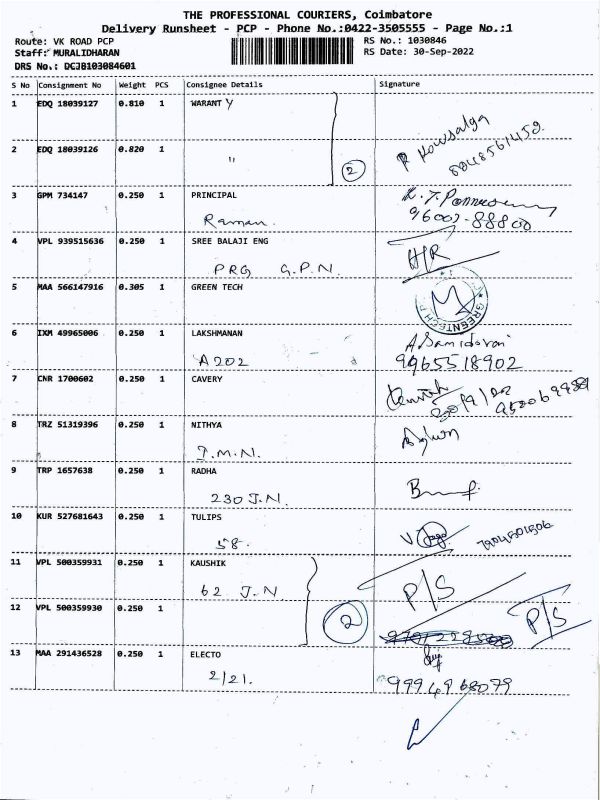 THE PROFESSIONAL COURIERS, Coimbatore
Delivery Runsheet - PCP - Phone No.:0422-3505555 - Page No.:1
Route: VK ROAD PCP
RS No.: 1030846
Staff: MURALIDHARAN
RS Date: 30-Sep-2022
DRS No.: DCJB103084601
S No Consignment No Weight PCS Consignee Details Signature
1 EDQ 18039127 0.810 1 WARANTY
2 EDQ 18039126 0.820 1 "
2
R Kowsalya
8248561459
3 GPM 734147 0.250 1 PRINCIPAL
Raman.
96002-88800
4 VPL 939515636 0.250 1 SREE BALAJI ENG
PRG G.P.N. H/R
5 MAA 566147916 0.305 1 GREEN TECH
GREENTECH
6 IXM 49965006 0.250 1 LAKSHMANAN
A202 9965518902
7 CNR 1700602 0.250 1 CAVERY
8 TRZ 51319396 0.250 1 NITHYA
J.M.N.
9 TRP 1657638 0.250 1 RADHA
230 J.N.
10 KUR 527681643 0.250 1 TULIPS
58.
11 VPL 500359931 0.250 1 KAUSHIK
62 J.N. P/S
12 VPL 500359930 0.250 1
2 P/S
13 MAA 291436528 0.250 1 ELECTO
2/21. 9994968079